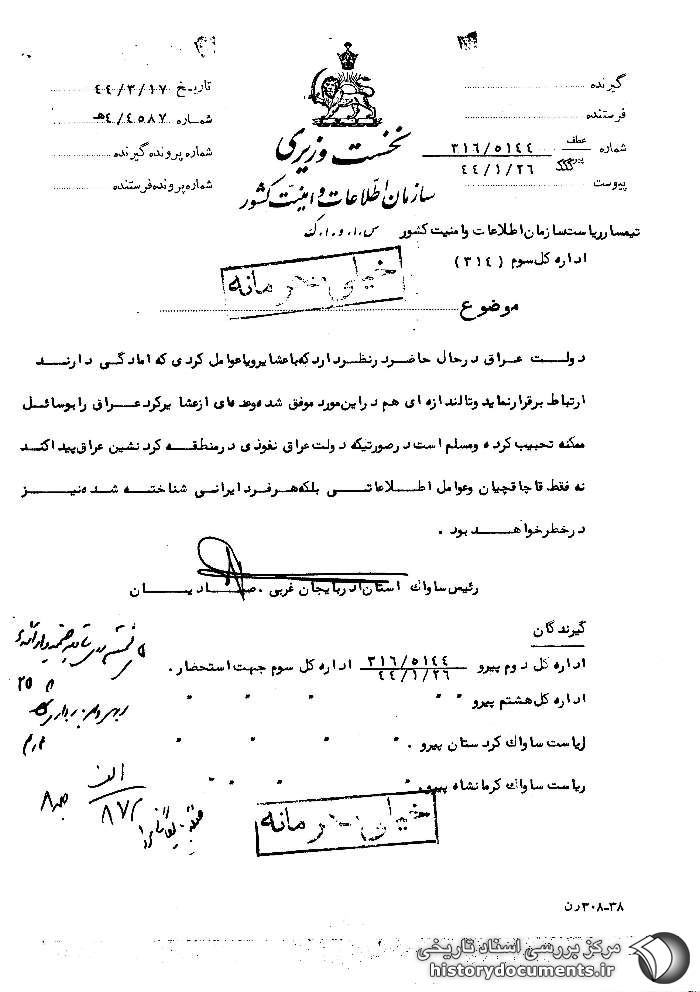 گیرنده
فرستنده
شماره عطف ۳۱۶/۵۱۴۴
پیرو ۴۴/۱/۲۶
پیوست
تاریخ ۴۴/۳/۱۷
شماره ۴/۴۵۸۷هـ
شماره پرونده گیرنده
شماره پرونده فرستنده
نخست وزیری
سازمان اطلاعات و امنیت کشور
تیمسار ریاست سازمان اطلاعات و امنیت کشور س.ا.و.ا.ک
اداره کل سوم (۳۱۴)
خیلی محرمانه
موضوع
دولت عراق در حال حاضر در نظر دارد که با عشایر و یا عوامل کردی که امادگی دارند
ارتباط برقرار نماید و تا اندازه ای هم در این مورد موفق شده و عده ای از عشایر کرد عراق را بوسائل
ممکنه تحبیب کرده و مسلم است در صورتیکه دولت عراق نفوذی در منطقه کرد نشین عراق پیدا کند
نه فقط قاچاقچیان و عوامل اطلاعاتی بلکه هر فرد ایرانی شناخته شده نیز
در خطر خواهد بود .
رئیس ساواک استان اذربایجان غربی .
گیرندگان
اداره کل دوم پیرو ۳۱۶/۵۱۴۴ ۴۴/۱/۲۶ اداره کل سوم جهت استحضار .
اداره کل هشتم پیرو " " " " "
ریاست ساواک کردستان پیرو . " " " "
ریاست ساواک کرمانشاه پیرو . " " " "
الف
۸۷۲
خیلی محرمانه
۳۰۸-۳۸ رن
مرکز بررسی اسناد تاریخی
historydocuments.ir